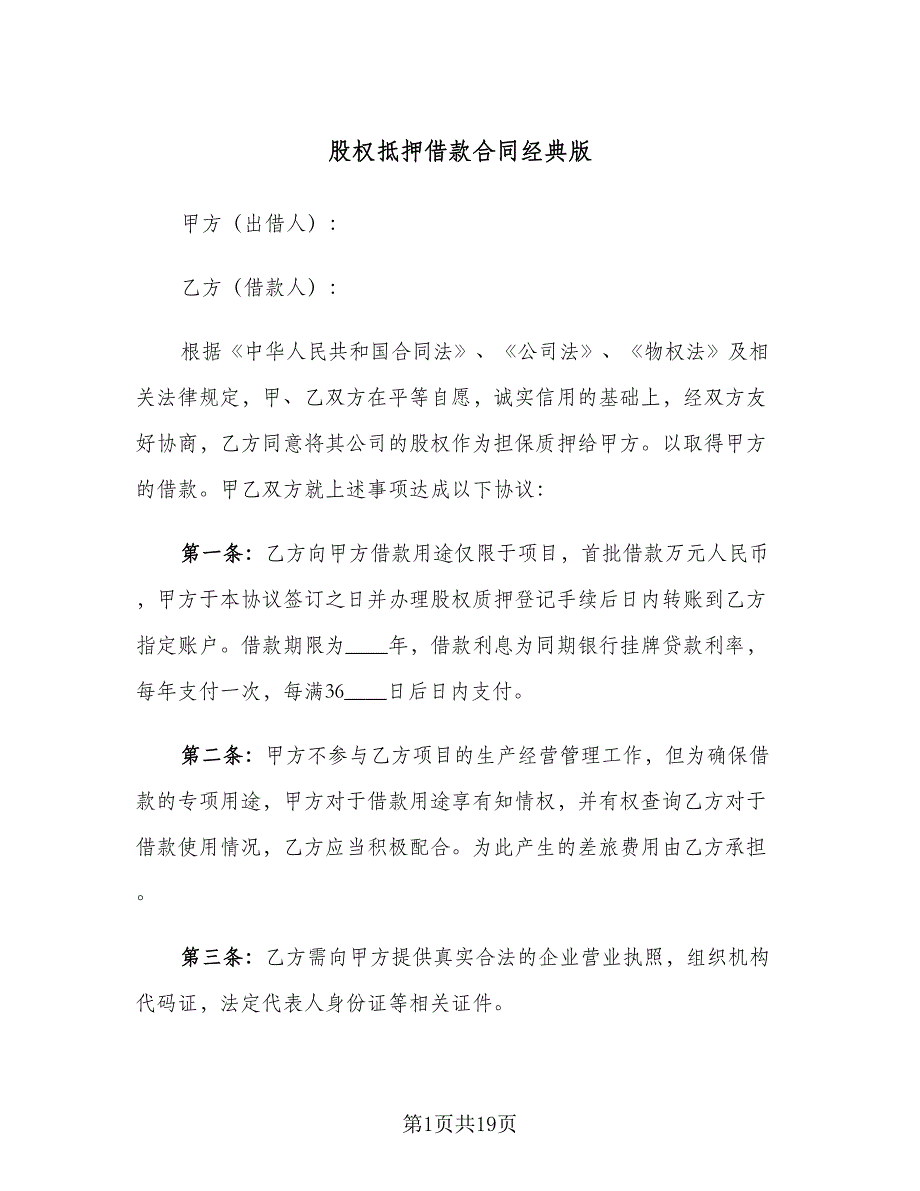 股权抵押借款合同经典版
甲方（出借人）：
乙方（借款人）：
根据《中华人民共和国合同法》、《公司法》、《物权法》及相
关法律规定，甲、乙双方在平等自愿，诚实信用的基础上，经双方友
好协商，乙方同意将其公司的股权作为担保质押给甲方。以取得甲方
的借款。甲乙双方就上述事项达成以下协议：
第一条：乙方向甲方借款用途仅限于项目，首批借款万元人民币
，甲方于本协议签订之日并办理股权质押登记手续后日内转账到乙方
指定账户。借款期限为____年，借款利息为同期银行挂牌贷款利率，
每年支付一次，每满36____日后日内支付。
第二条：甲方不参与乙方项目的生产经营管理工作，但为确保借
款的专项用途，甲方对于借款用途享有知情权，并有权查询乙方对于
借款使用情况，乙方应当积极配合。为此产生的差旅费用由乙方承担
。
第三条：乙方需向甲方提供真实合法的企业营业执照，组织机构
代码证，法定代表人身份证等相关证件。
第1页共19页